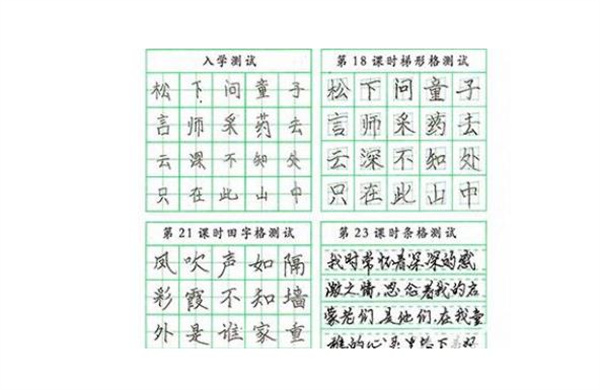 入学测试
松下问童子
言师采药去
云深不知处
只在此山中
第18课时梯形格测试
松下问童子
言师采药去
云深不知处
只在此山中
第21课时田字格测试
凤吹声如隔
彩霞不知墙
外是谁家重
第23课时条格测试
我时常怀着深深的感
激之情,思念着我的启
蒙老们,是他们,在我童
稚的心灵中给下